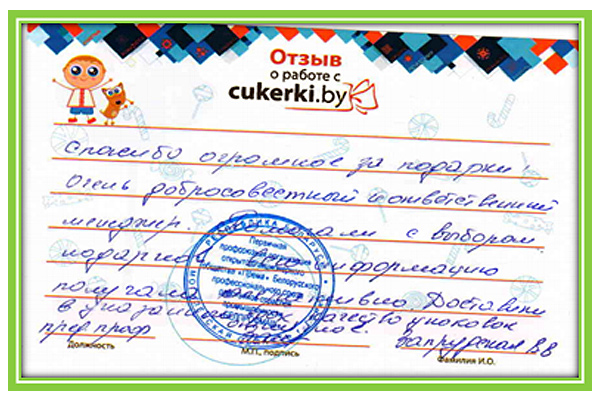 Отзыв
о работе с
cukerki.by
Спасибо огромное за подарки!
Очень добросовестный и ответственный
менеджер. с выбором
подарков всю информацию
получала Доставили
в указанный срок качество упаковок
отличное.
пред проф Запрудская В.В
Должность М.П., подпись Фамилия И.О.
РЕСПУБЛИКА БЕЛАРУСЬ
Первичная
профсоюзная организация
открытого
общества Белорусского
профессионального союза